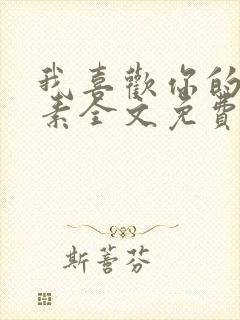 我喜歡你的
素全文免費
斯蕾芬